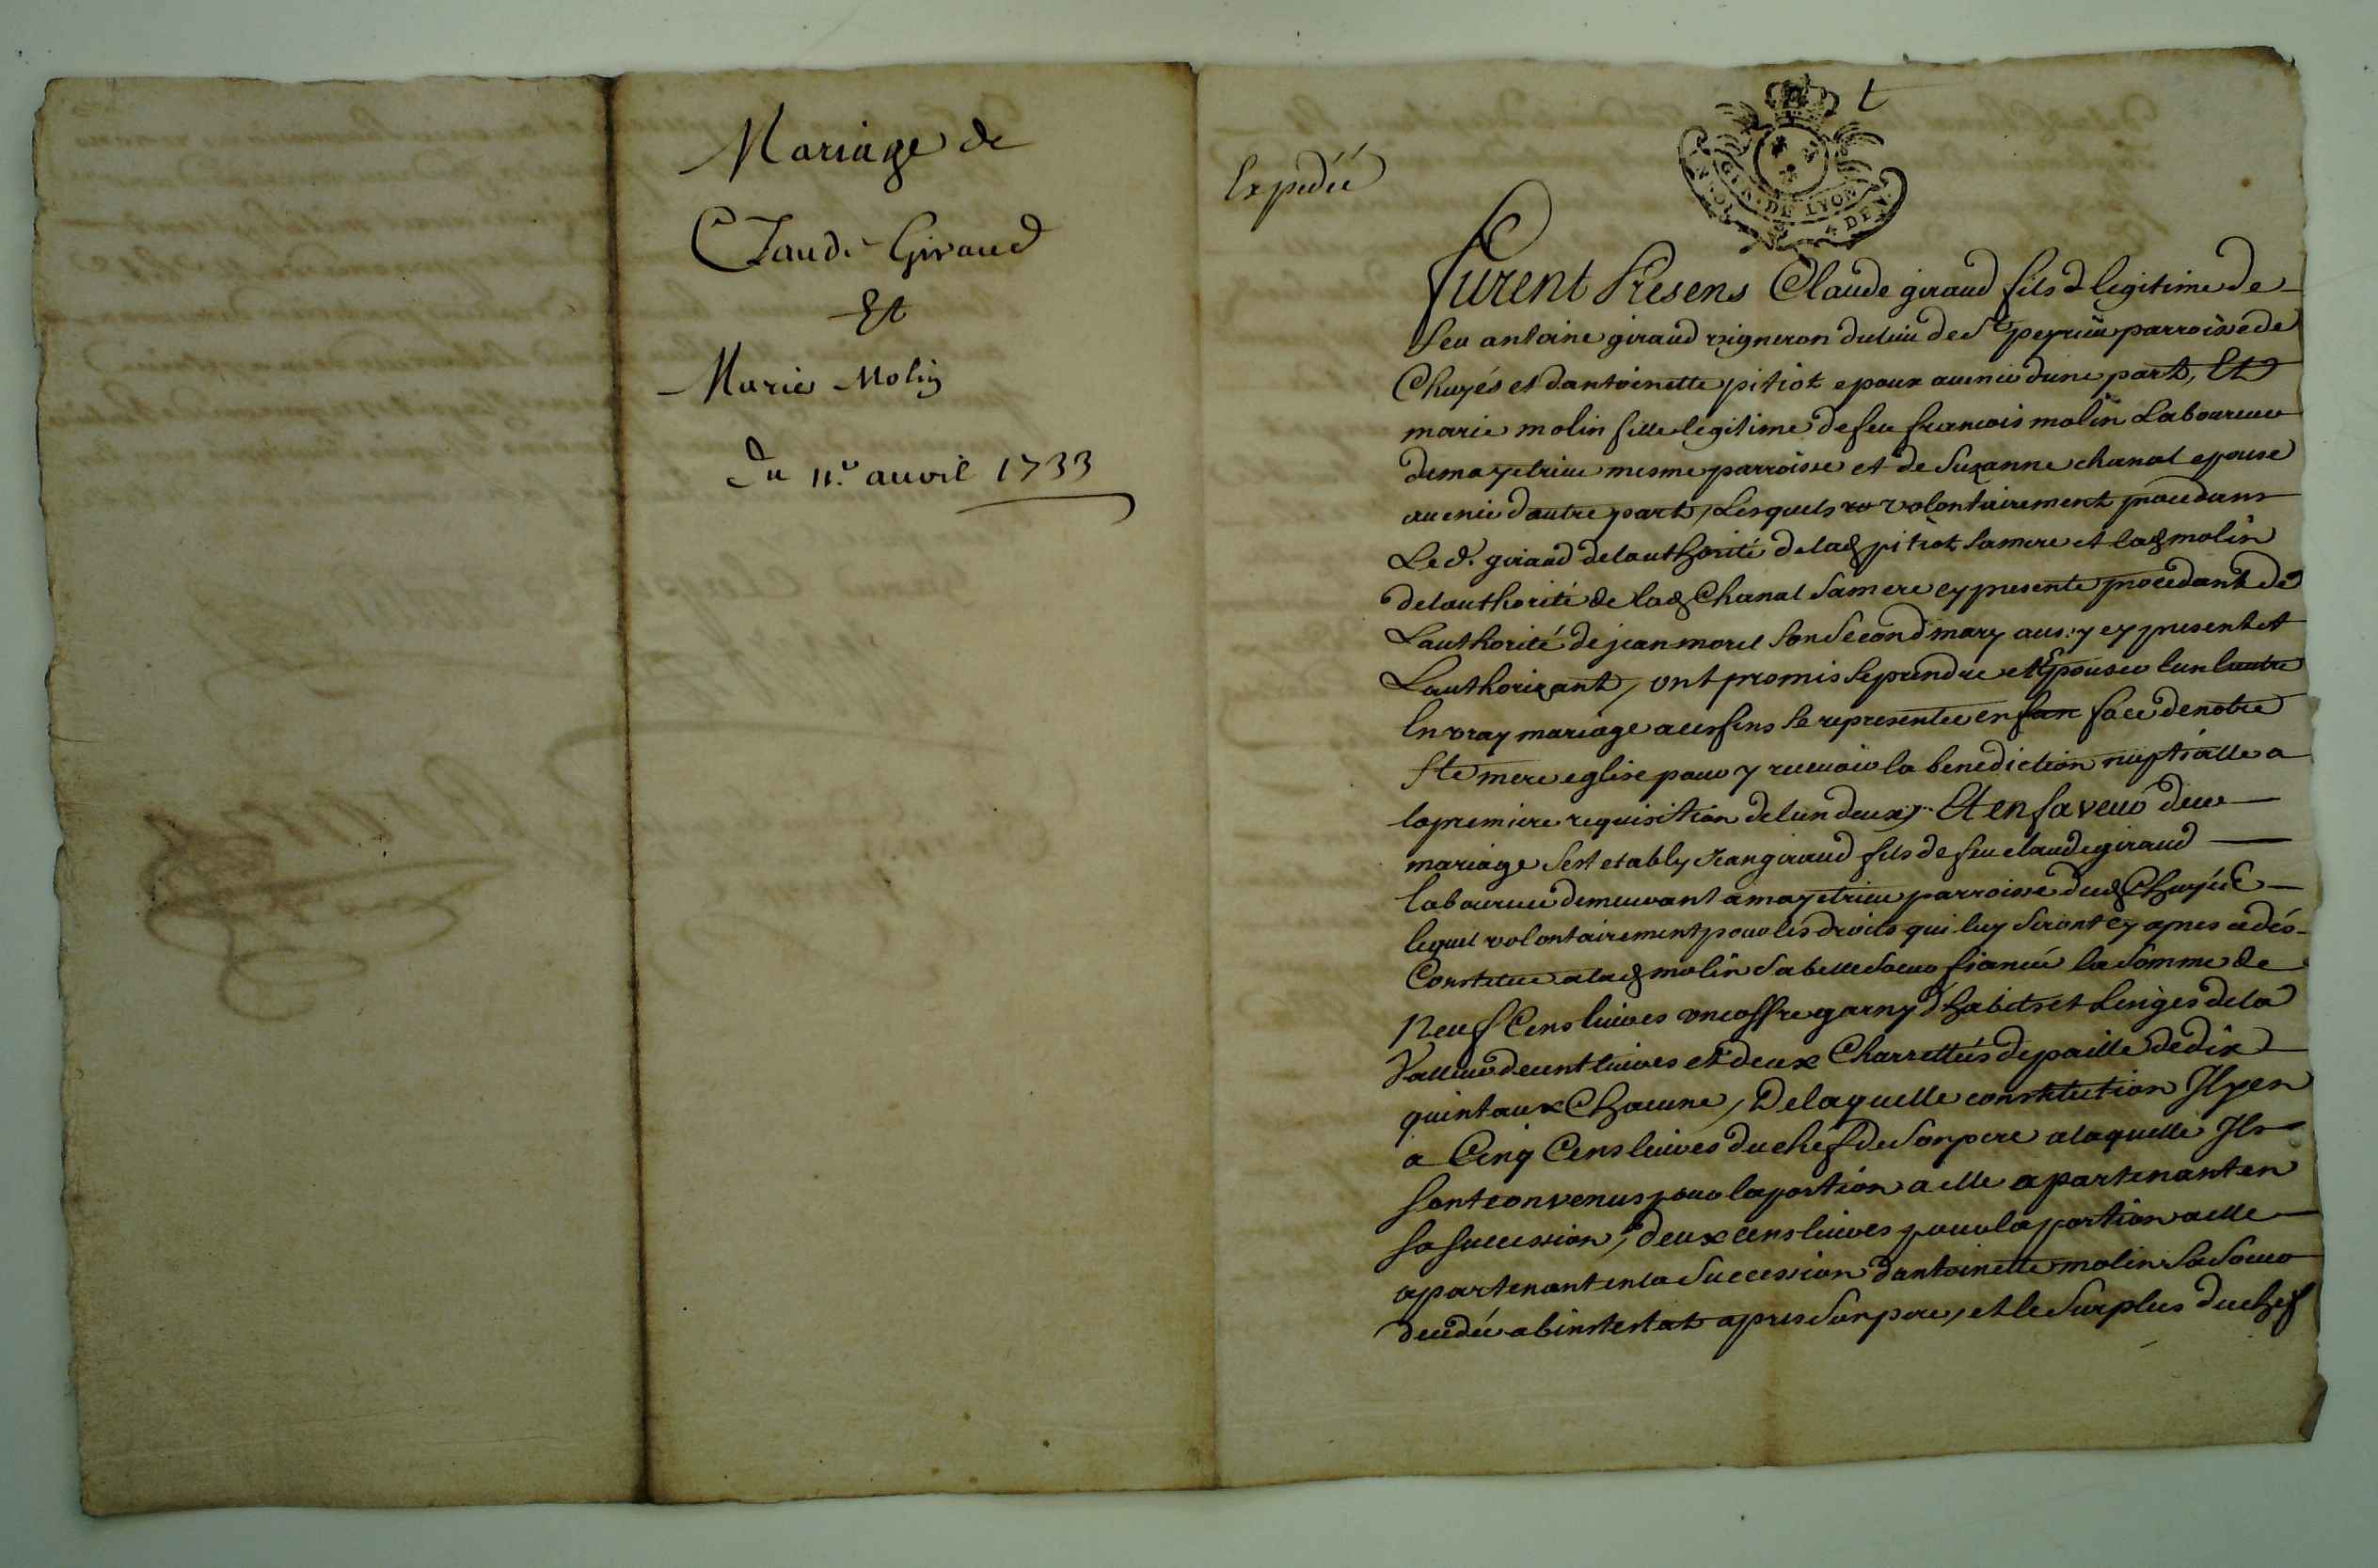 Mariage de
Claude Giraud
Et
Marie Molin
Du 11e. auvril 1733
Expediée
GEN. DE LYON
DEN.
furent Presens Claude giraud fils legitime de
feu antoine giraud vigneron du lieu de St peyrieu parroisse de
Chuyés et dantoinette pitiot epoux avenir dune part, Et
marie molin fille legitime de feu francois molin Laboureur
de mayetrieu mesme parroisse et de Suzanne chanal epouse
avenir dautre part, Lesquels volontairement procedans
Led. giraud de lauthorité de lad pitiot sa mere et lad molin
de lauthorité de lad Chanal sa mere cy presente procedant de
Lauthorité de jean morel son Second mary aussy cy present et
Lauthorizant, ont promis se prendre et Epouser lun lautre
En vray mariage a ces fins se representer en fan face de notre
Ste mere eglise pour y recevoir la benediction nuptialle a
la premiere requisition de lun deux, Et en faveur du
mariage sest etably Jean giraud fils de feu claude giraud
laboureur demeurant a mayetrieu parroisse dud Chuyés
lequel volontairement pour les droits qui luy seront cy apres cedés
Constitue a lad molin sa belle soeur fiancée la somme de
Neuf Cens livres un coffre garny dhabits et Linges de la
Valleur de cent livres et deux Charrettées de paille de dix
quintaux Chacune, De laquelle constitution Il y en
a Cinq Cens livres du chef de son pere a laquelle Ils
sont convenus pour la portion a elle apartenant en
sa succession, deux cens livres pour la portion a elle
apartenant en la Succession dantoinette molin Sa Soeur
decedée abintestat apres son pere, et le Surplus du chef